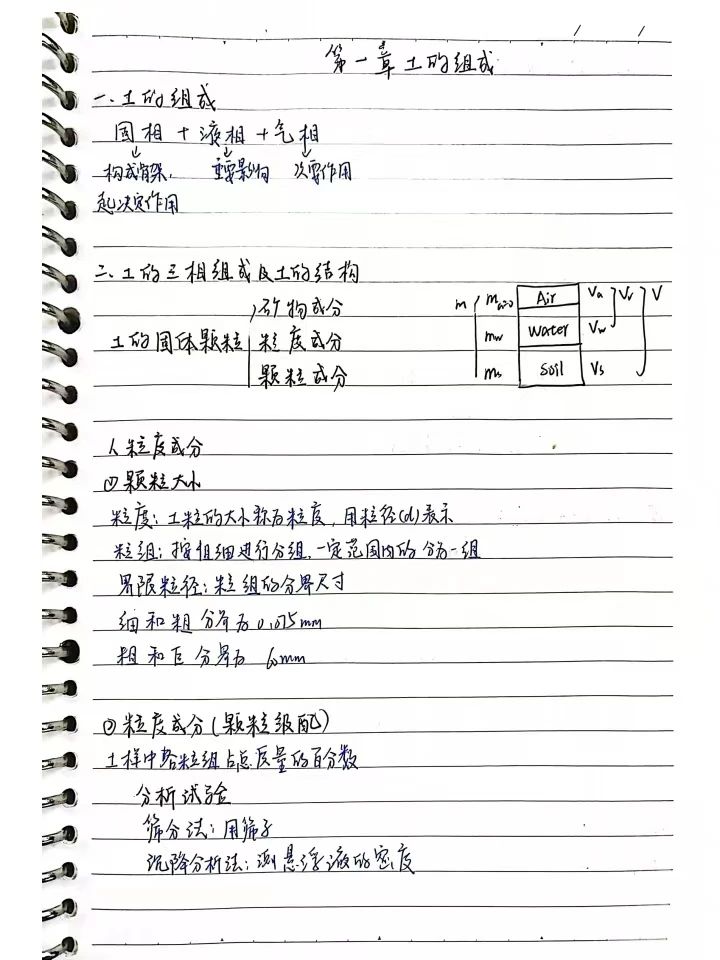 第一章 土的组成
一.土的组成
固相 + 液相 + 气相
构成骨架, 重要影响 次要作用
起决定作用
二.土的三相组成及土的结构
土的固体颗粒
矿物成分
粒度成分
颗粒成分
m ma=0 Air Va Vv V
mw Water Vw
ms Soil Vs
1、粒度成分
① 颗粒大小
粒度：土粒的大小称为粒度，用粒径(d)表示
粒组：按粗细进行分组，一定范围内的分为一组
界限粒径：粒组的分界尺寸
细和粗 分界为 0.075mm
粗和巨 分界为 60mm
② 粒度成分(颗粒级配)
土样中各粒组占总质量的百分数
分析试验
筛分法：用筛子
沉降分析法：测悬浮液的密度